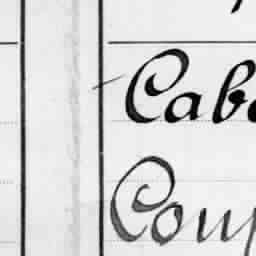 Cab
Coup